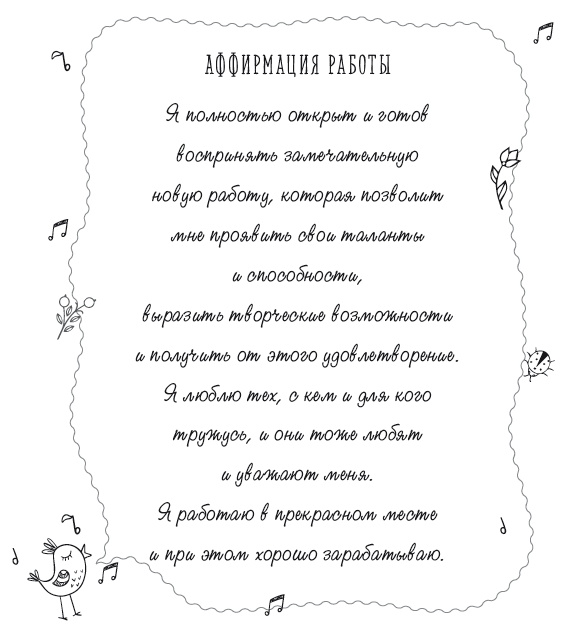 АФФИРМАЦИЯ РАБОТЫ
Я полностью открыт и готов
воспринять замечательную
новую работу, которая позволит
мне проявить свои таланты
и способности,
выразить творческие возможности
и получить от этого удовлетворение.
Я люблю тех, с кем и для кого
тружусь, и они тоже любят
и уважают меня.
Я работаю в прекрасном месте
и при этом хорошо зарабатываю.